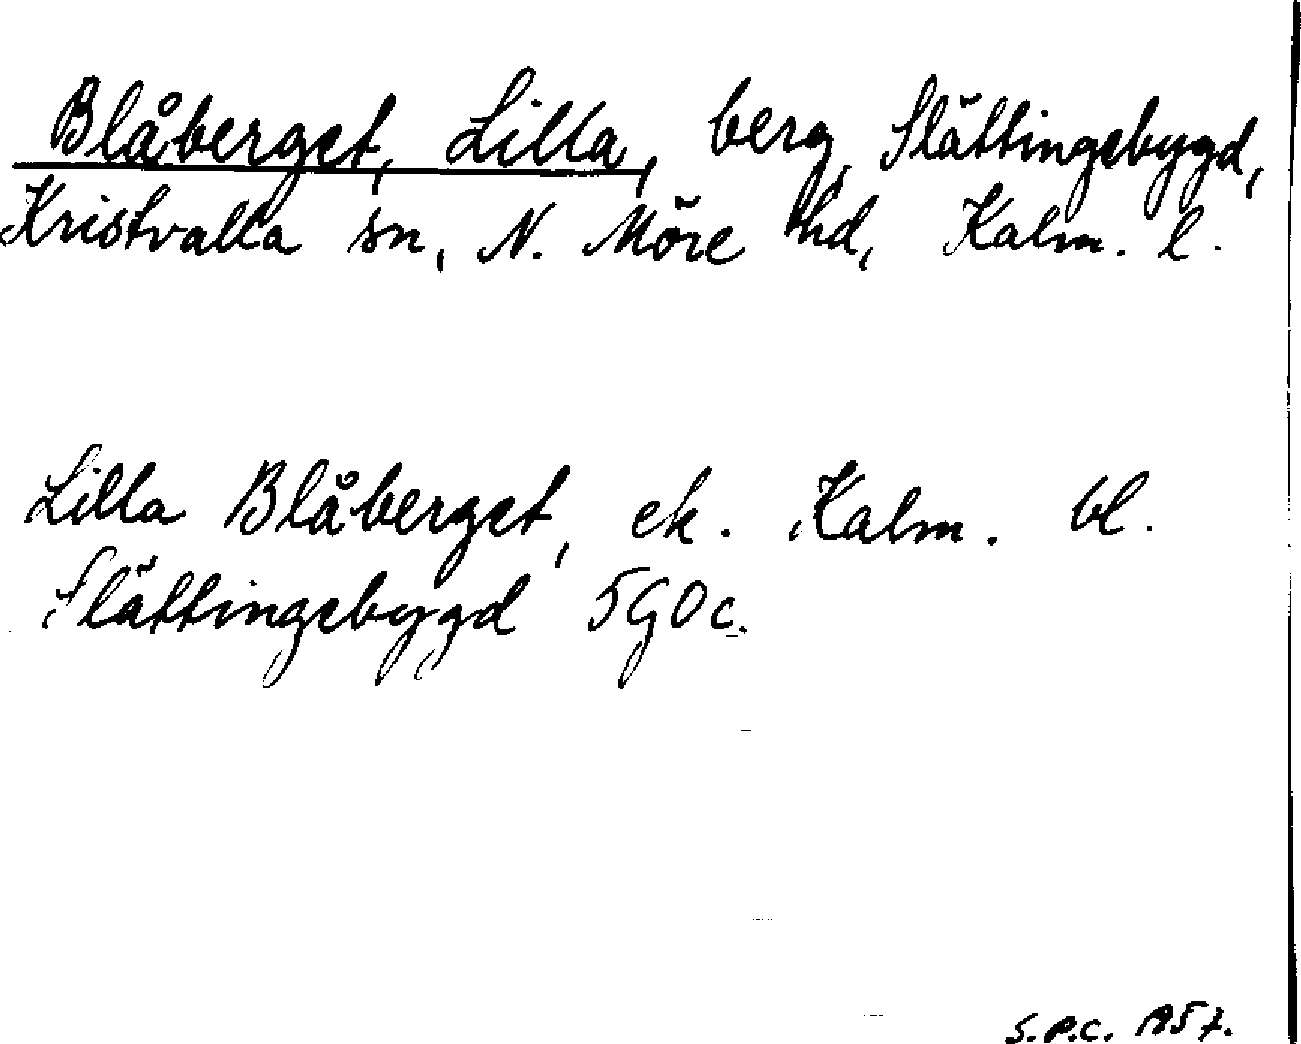 Blåberget, Lilla, berg, Slättingebygd,
Kristvalla sn, N. Möre hd, Kalm. l.
Lilla Blåberget, ek. Kalm. bl.
Slättingebygd 5G0c.
S.P.C. 1957.